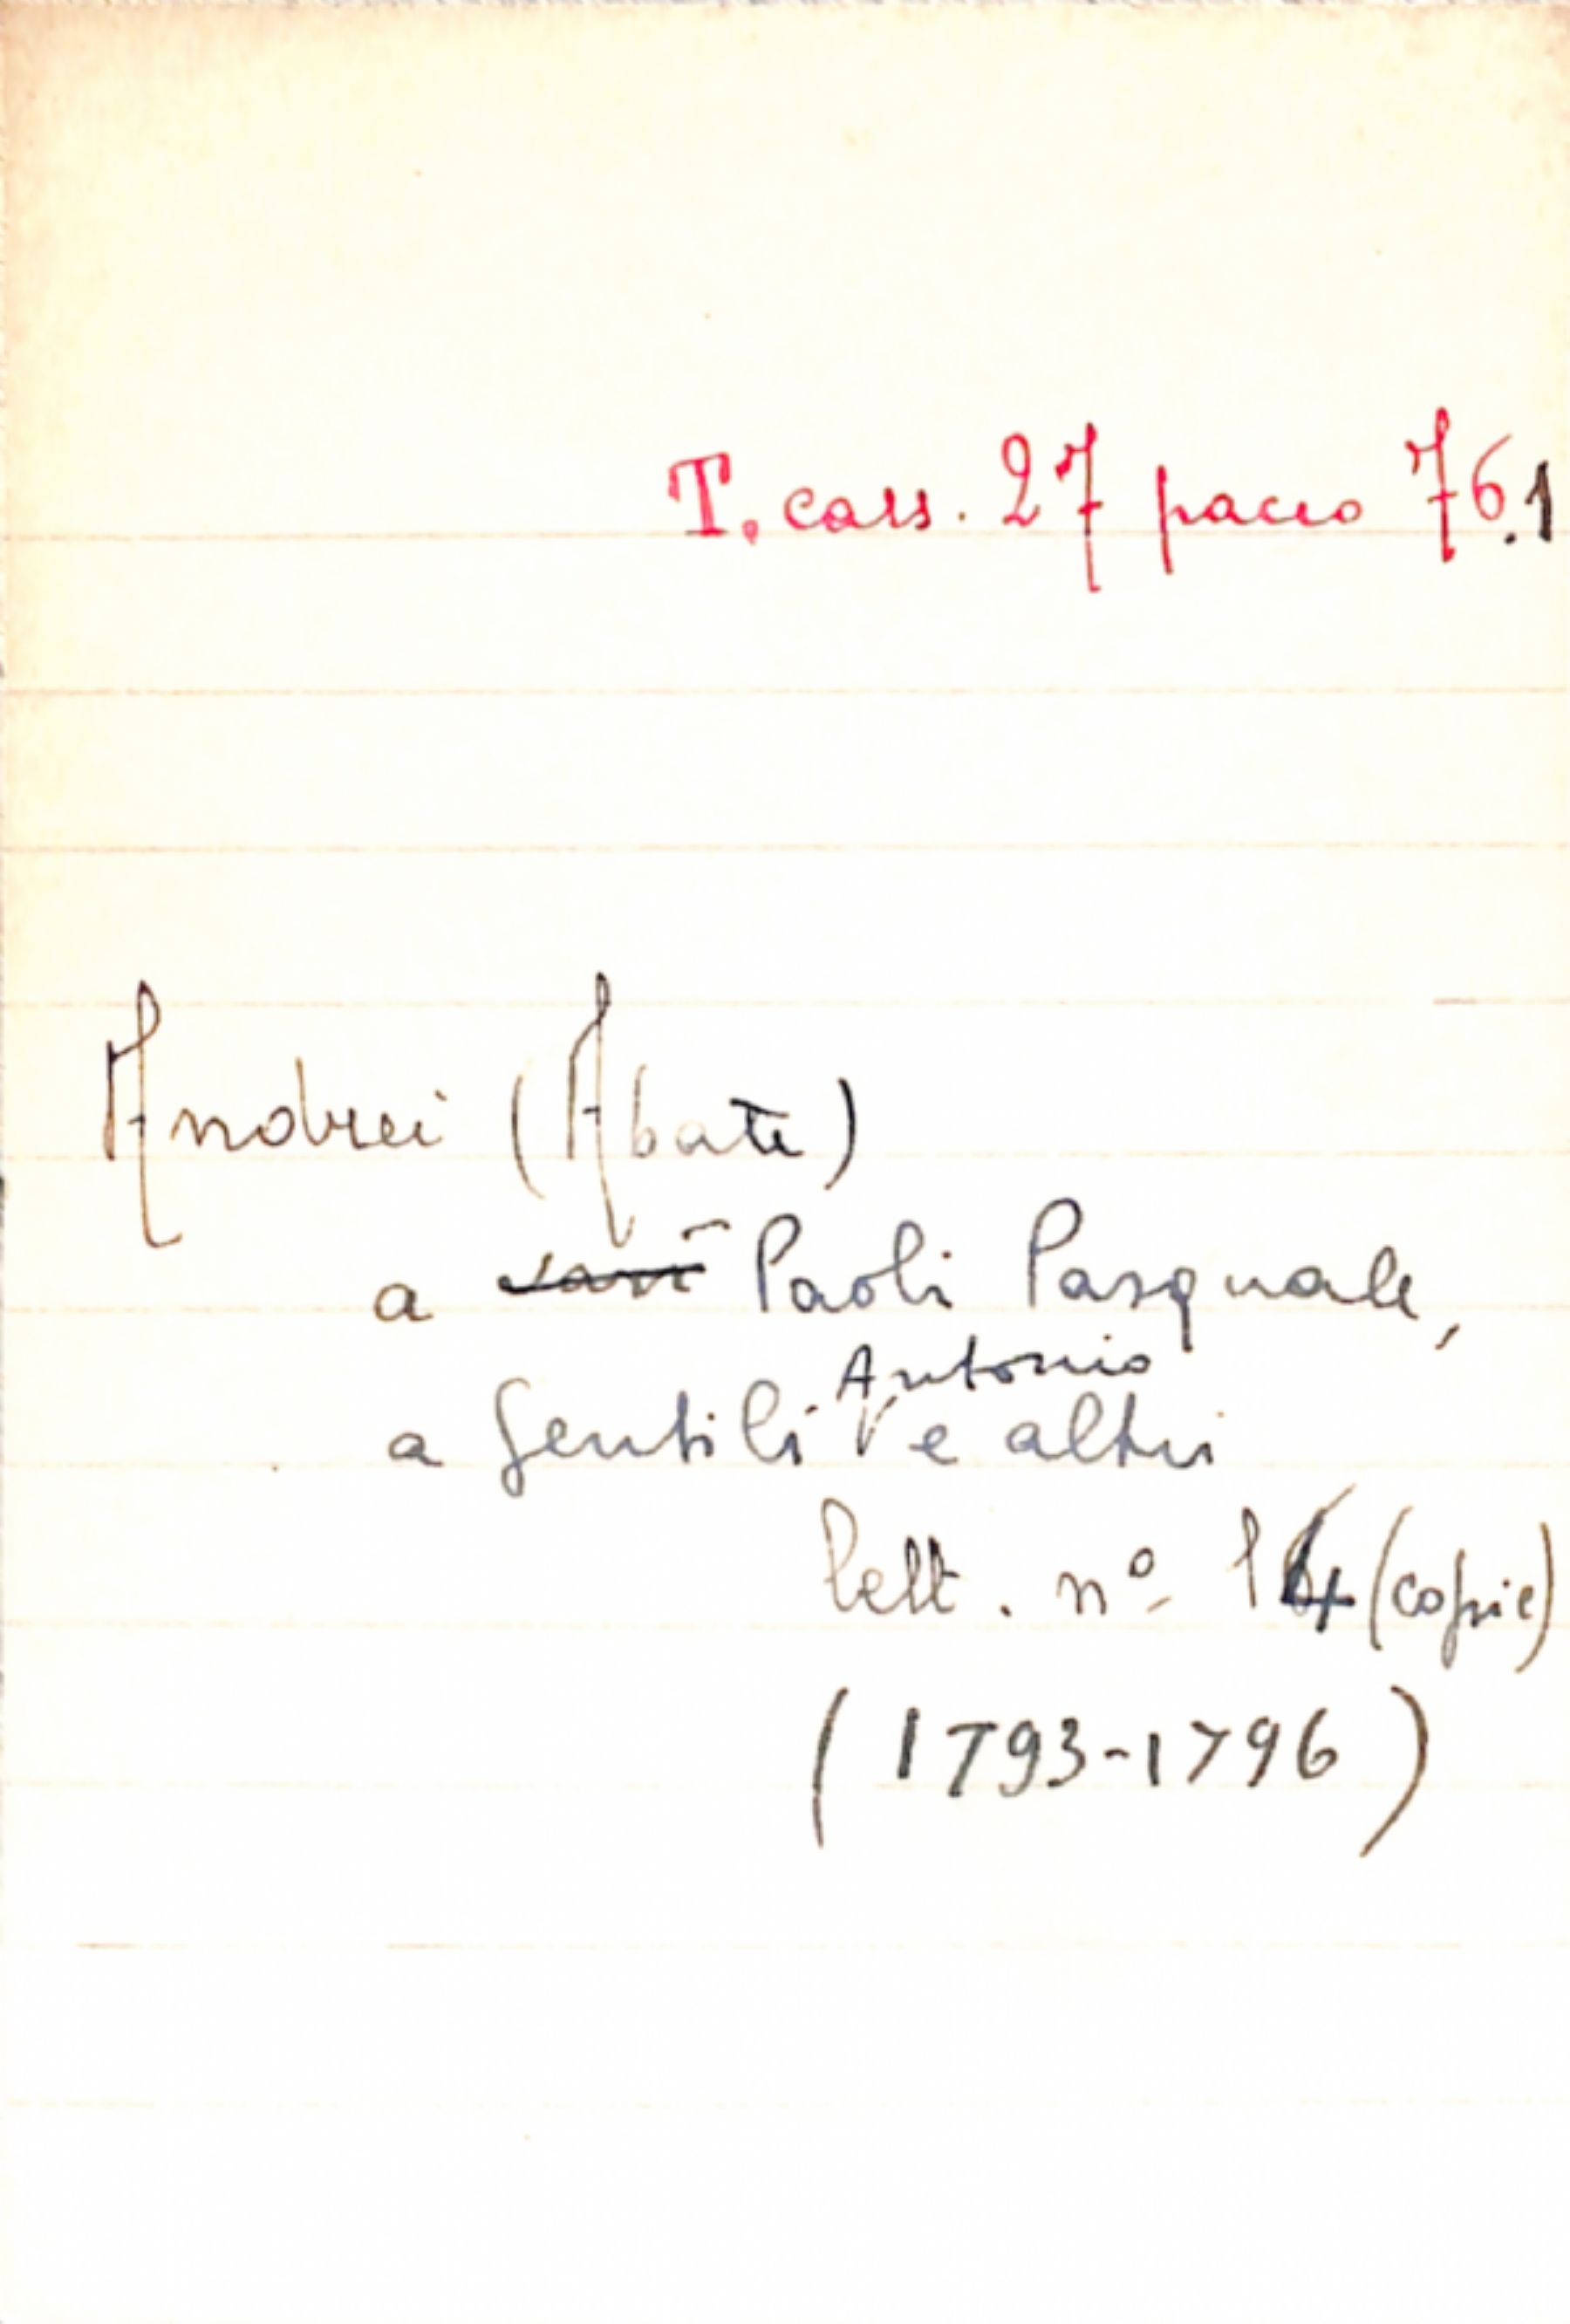 T. cass. 27 pacco 76.1
Andrei (Abate)
a vari Paoli Pasquale,
Antonio
a Gentili e altri
lett. nº 14 (copie)
(1793-1796)